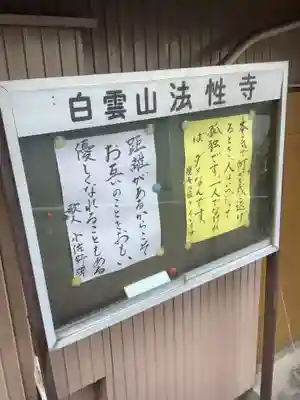 白雲山法性寺
本気で何かを成し遂げ
るとき、人はいつだって
孤独です。一人でなけれ
は、ダメなんです。
距離があるからこそ
お互いのことをおもい、
優しくなれることもある
歌人 小佐野彈